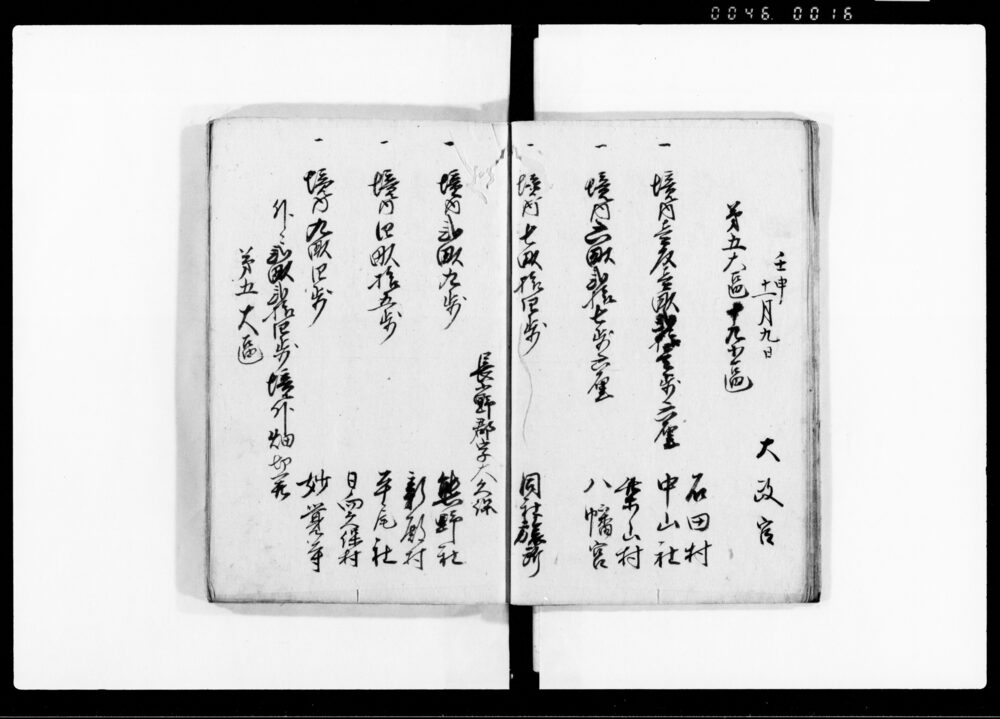 0046. 0016
壬申
十一月九日
大政官
第五大區十九小區
石田村
一 境内壱反壱畝弐拾壱歩二厘
中山社
葉山村
一 境内六畝弐拾七歩六厘
八幡宮
一 境内七畝拾四歩
同社旅所
長野郡字大久保
一 境内弐畝九歩
熊野社
新殿村
一 境内四畝拾五歩
平尾社
日向久保村
一 境内九畝四歩
妙覚寺
外ニ弐畝弐拾四歩境外畑
第五大區